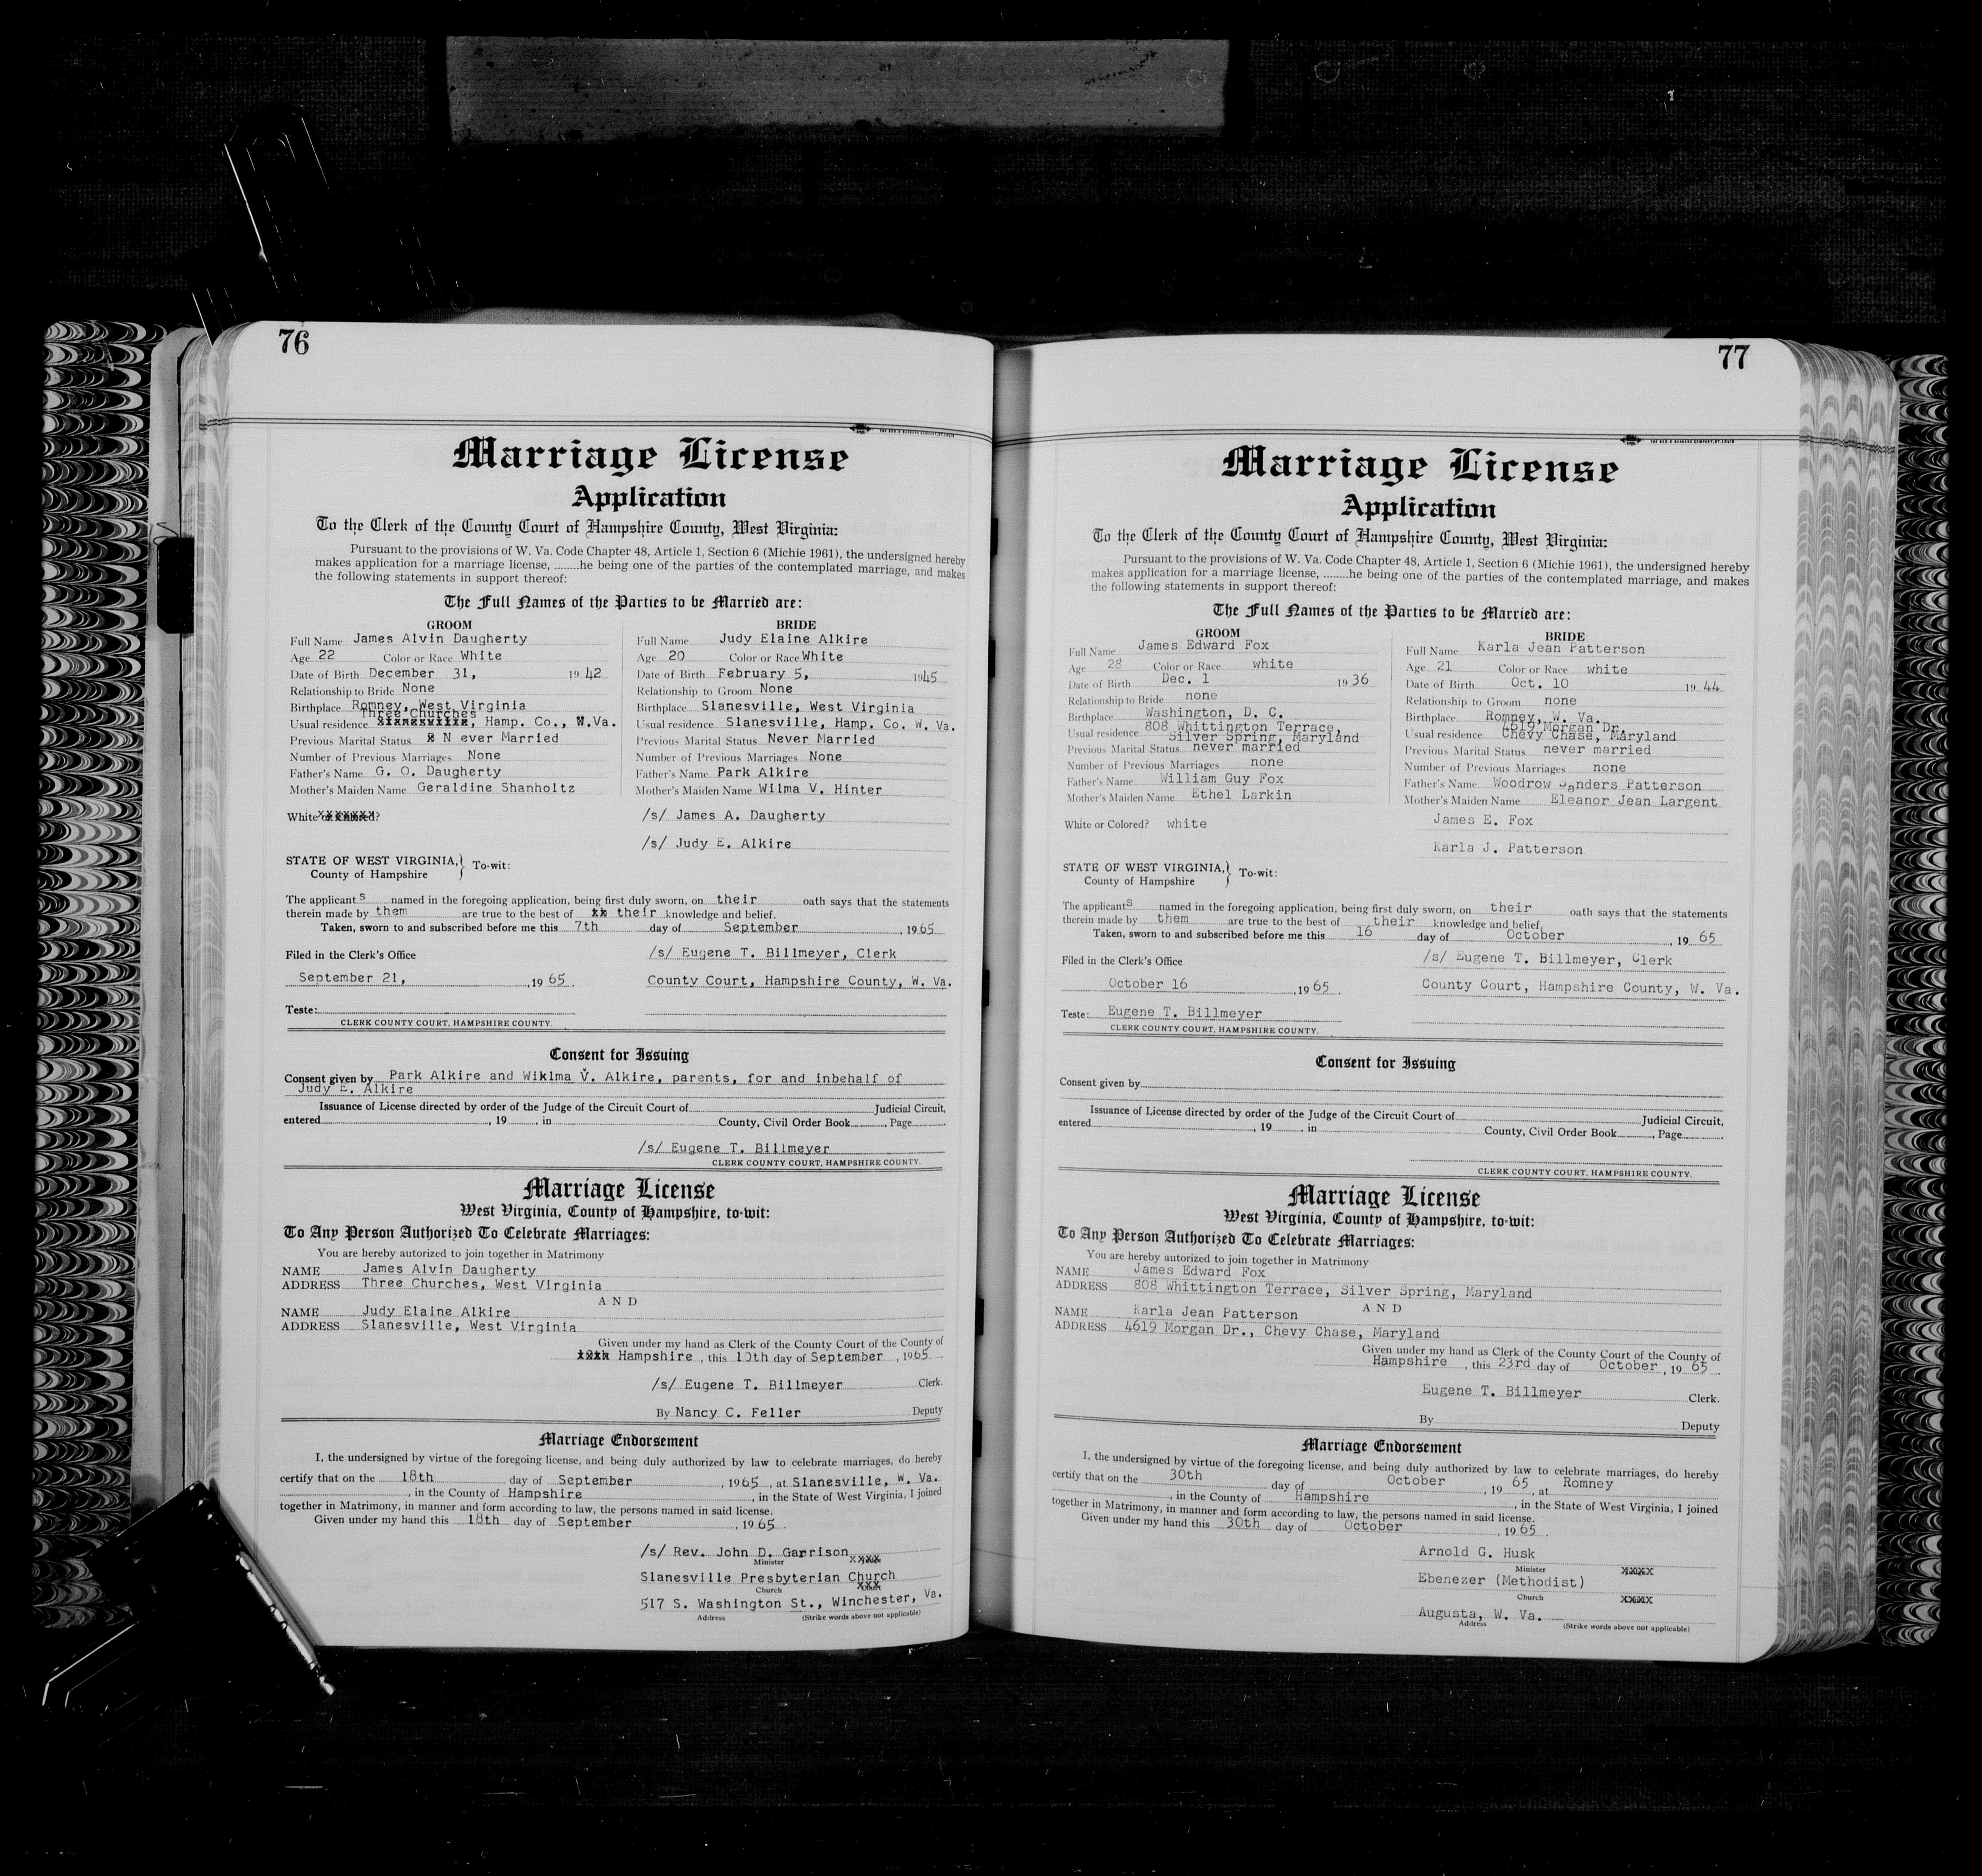 76
Marriage License
Application
To the Clerk of the County Court of Hampshire County, West Virginia:
Pursuant to the provisions of W. Va. Code Chapter 48, Article 1, Section 6 (Michie 1961), the undersigned hereby
makes application for a marriage license, ........he being one of the parties of the contemplated marriage, and makes
the following statements in support thereof:
The Full Names of the Parties to be Married are:
GROOM
Full Name James Alvin Daugherty
Age 22 Color or Race White
Date of Birth December 31, 1942
Relationship to Bride None
Birthplace Romney, West Virginia
Three Churches
Usual residence , Hamp. Co., W.Va.
Previous Marital Status N ever Married
Number of Previous Marriages None
Father's Name G. O. Daugherty
Mother's Maiden Name Geraldine Shanholtz
BRIDE
Full Name Judy Elaine Alkire
Age 20 Color or Race White
Date of Birth February 5, 1945
Relationship to Groom None
Birthplace Slanesville, West Virginia
Usual residence Slanesville, Hamp. Co. W. Va.
Previous Marital Status Never Married
Number of Previous Marriages None
Father's Name Park Alkire
Mother's Maiden Name Wilma V. Hinter
White or Colored?
/s/ James A. Daugherty
/s/ Judy E. Alkire
STATE OF WEST VIRGINIA, } To-wit:
County of Hampshire
The applicant s named in the foregoing application, being first duly sworn, on their oath says that the statements
therein made by them are true to the best of xx their knowledge and belief.
Taken, sworn to and subscribed before me this 7th day of September, 1965
Filed in the Clerk's Office
/s/ Eugene T. Billmeyer, Clerk
September 21, , 19 65 .
County Court, Hampshire County, W. Va.
Teste:
CLERK COUNTY COURT, HAMPSHIRE COUNTY.
Consent for Issuing
Consent given by Park Alkire and Wiklma V. Alkire, parents, for and inbehalf of
Judy E. Alkire
Issuance of License directed by order of the Judge of the Circuit Court of Judicial Circuit,
entered , 19 , in County, Civil Order Book , Page .
/s/ Eugene T. Billmeyer
CLERK COUNTY COURT, HAMPSHIRE COUNTY.
Marriage License
West Virginia, County of Hampshire, to-wit:
To Any Person Authorized To Celebrate Marriages:
You are hereby autorized to join together in Matrimony
NAME James Alvin Daugherty
ADDRESS Three Churches, West Virginia
AND
NAME Judy Elaine Alkire
ADDRESS Slanesville, West Virginia
Given under my hand as Clerk of the County Court of the County of
Hampshire , this 10th day of September , 1965 .
/s/ Eugene T. Billmeyer Clerk.
By Nancy C. Feller Deputy
Marriage Endorsement
I, the undersigned by virtue of the foregoing license, and being duly authorized by law to celebrate marriages, do hereby
certify that on the 18th day of September , 1965 , at Slanesville, W. Va.
, in the County of Hampshire , in the State of West Virginia, I joined
together in Matrimony, in manner and form according to law, the persons named in said license.
Given under my hand this 18th day of September , 1965 .
/s/ Rev. John D. Garrison
Minister xxxx
Slanesville Presbyterian Church
Church xxx
517 S. Washington St., Winchester, Va.
Address (Strike words above not applicable)
77
Marriage License
Application
To the Clerk of the County Court of Hampshire County, West Virginia:
Pursuant to the provisions of W. Va. Code Chapter 48, Article 1, Section 6 (Michie 1961), the undersigned hereby
makes application for a marriage license, ........he being one of the parties of the contemplated marriage, and makes
the following statements in support thereof:
The Full Names of the Parties to be Married are:
GROOM
Full Name James Edward Fox
Age 28 Color or Race white
Date of Birth Dec. 1 1936
Relationship to Bride none
Birthplace Washington, D. C.
Usual residence 808 Whittington Terrace,
Silver Spring, Maryland
Previous Marital Status never married
Number of Previous Marriages none
Father's Name William Guy Fox
Mother's Maiden Name Ethel Larkin
BRIDE
Full Name Karla Jean Patterson
Age 21 Color or Race white
Date of Birth Oct. 10 1944
Relationship to Groom none
Birthplace Romney, W. Va.
4619 Morgan Dr.
Usual residence Chevy Chase, Maryland
Previous Marital Status never married
Number of Previous Marriages none
Father's Name Woodrow Sanders Patterson
Mother's Maiden Name Eleanor Jean Largent
White or Colored? white
James E. Fox
Karla J. Patterson
STATE OF WEST VIRGINIA, } To-wit:
County of Hampshire
The applicants named in the foregoing application, being first duly sworn, on their oath says that the statements
therein made by them are true to the best of their knowledge and belief.
Taken, sworn to and subscribed before me this 16 day of October , 19 65
Filed in the Clerk's Office
/s/ Eugene T. Billmeyer, Clerk
October 16 , 19 65 .
County Court, Hampshire County, W. Va.
Teste: Eugene T. Billmeyer
CLERK COUNTY COURT, HAMPSHIRE COUNTY.
Consent for Issuing
Consent given by
Issuance of License directed by order of the Judge of the Circuit Court of Judicial Circuit,
entered , 19 , in County, Civil Order Book , Page .
CLERK COUNTY COURT, HAMPSHIRE COUNTY.
Marriage License
West Virginia, County of Hampshire, to-wit:
To Any Person Authorized To Celebrate Marriages:
You are hereby autorized to join together in Matrimony
NAME James Edward Fox
ADDRESS 808 Whittington Terrace, Silver Spring, Maryland
AND
NAME Karla Jean Patterson
ADDRESS 4619 Morgan Dr., Chevy Chase, Maryland
Given under my hand as Clerk of the County Court of the County of
Hampshire , this 23rd day of October , 19 65 .
Eugene T. Billmeyer Clerk.
By Deputy
Marriage Endorsement
I, the undersigned by virtue of the foregoing license, and being duly authorized by law to celebrate marriages, do hereby
certify that on the 30th day of October , 19 65 , at Romney
, in the County of Hampshire , in the State of West Virginia, I joined
together in Matrimony, in manner and form according to law, the persons named in said license.
Given under my hand this 30th day of October , 1965 .
Arnold G. Husk
Minister xxxx
Ebenezer (Methodist)
Church xxxx
Augusta, W. Va.
Address (Strike words above not applicable)